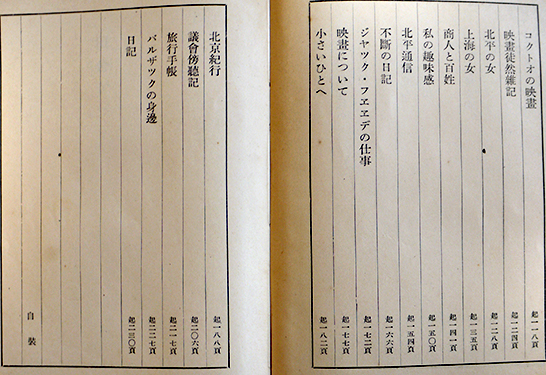 コクトオの映畫 起一一八頁
映畫徒然雜記 起一二四頁
北平の女 起一二八頁
上海の女 起一三五頁
商人と百姓 起一四一頁
私の趣味感 起一五〇頁
北平通信 起一五四頁
不斷の日記 起一六六頁
ジヤツク・フエエデの仕事 起一七二頁
映畫について 起一七七頁
小さいひとへ 起一八二頁
北京紀行 起一八八頁
議會傍聽記 起二〇六頁
旅行手帳 起二一七頁
バルザツクの身邊 起二二七頁
日記 起二三〇頁
自裝